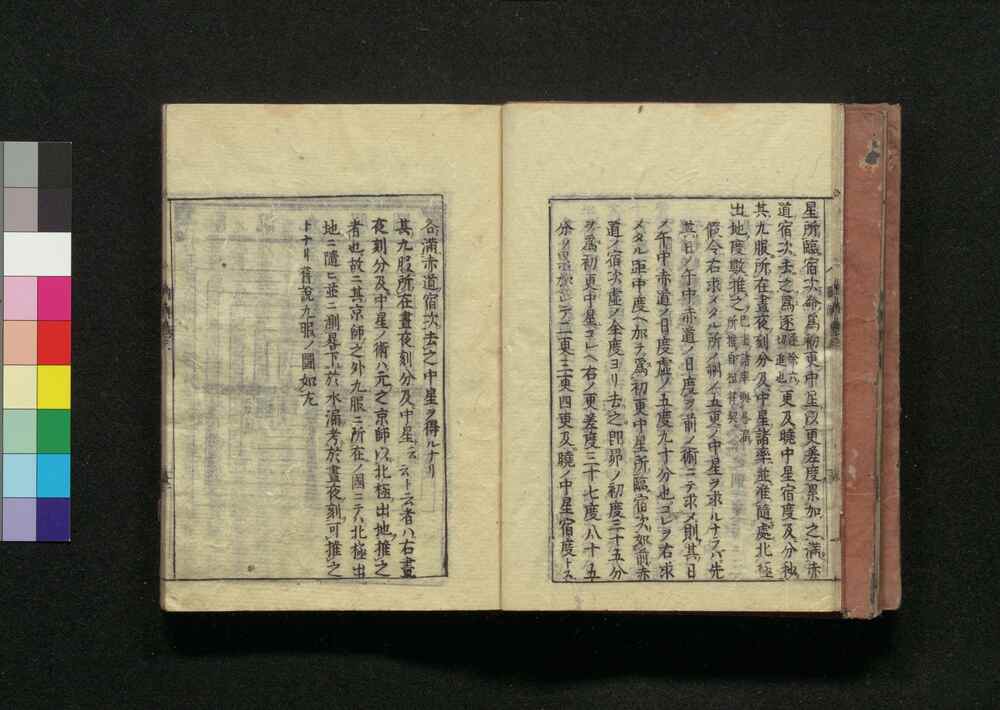 星所臨宿次命爲初更中星以更差度累加之滿赤
道宿次去之爲逐更及曉中星宿度及分秒
其九服所在晝夜刻分及中星諸率並准隨處北極
出地度數推之
假令右求メタル所ノ例ノ五更ノ中星ヲ求ルナラハ先
其日ノ午中赤道ノ日度ヲ前ノ術ニテ求メ則其日
ノ午中赤道ノ日度虚ノ五度九十分也コレヲ右求
メタル距中度ヘ加ヲ爲初更中星所臨宿次如前赤
道ノ宿次虚ノ全度ヨリ去之即昴ノ初度三十五分
ヲ爲初更中星コレヘ右ノ更差度三十七度八十五
分ヲ累加シテ二更三更四更及曉ノ中星宿度トス
各滿赤道宿次去之中星ヲ得ルナリ
其九服所在晝夜刻分及中星云云ト云者ハ右晝
夜刻分及中星ノ術ハ元之京師以北極出地推之
者也故ニ其京師之外九服ニ所在ノ國ニテハ北極出
地ニ隨ヒ並ニ測晷下於水漏考於晝夜刻可推之
トナリ舊説九服ノ圖如左